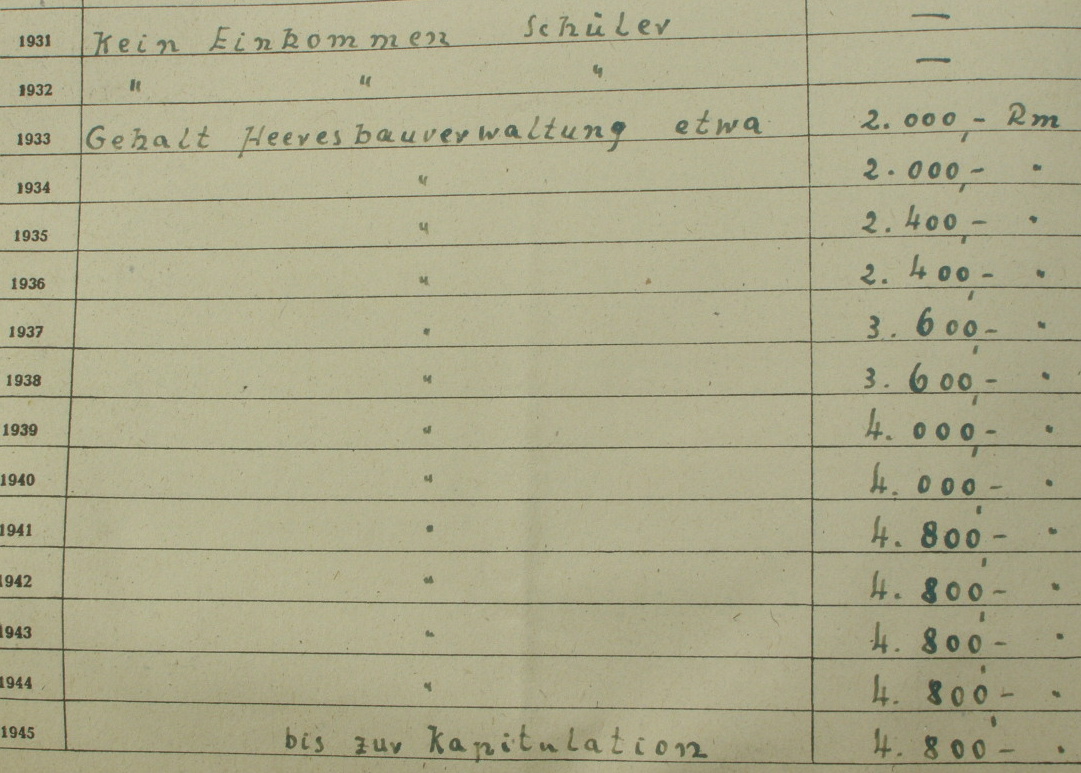 1931 Kein Einkommen Schüler —
1932 " " " —
1933 Gehalt Heeresbauverwaltung etwa 2.000,- Rm
1934 " 2.000,- "
1935 " 2.400,- "
1936 " 2.400,- "
1937 " 3.600,- "
1938 " 3.600,- "
1939 " 4.000,- "
1940 " 4.000,- "
1941 " 4.800,- "
1942 " 4.800,- "
1943 " 4.800,- "
1944 " 4.800,- "
1945 bis zur Kapitulation 4.800,- "